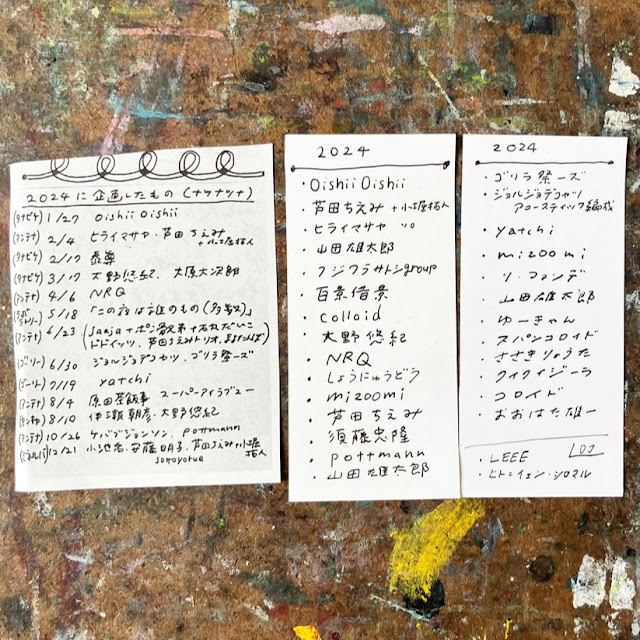 2024に企画したもの(ナツナツナ)
(タナビケ) 1/27 oishii oishii
(アンテナ) 2/4 ヒライマサヤ・芦田ちえみ
+小堀拓人
(タナビケ) 2/17
(タナビケ) 3/17 大野悠紀、大原大次郎
(アンテナ) 4/6 NRQ
5/18 「この夜は誰のもの(多数)」
(アンテナ) 6/23
ドドイッツ、芦田ちえみトリオ
(ゴーリー) 6/30 ジョルジョデコャツ・ゴリラ祭ーズ
(ゴーリー) 7/19 yatchi
(アンテナ) 8/4 原田茶飯事 スーパーアイラブユー
8/10 伊瀬朝彦・大野悠紀
(アンテナ) 10/26 ケバブジョンソン、pottmann
12/21 小池喬・安藤明子・芦田ちえみ+小堀
拓人
2024
・Oishii Oishii
・芦田ちえみ+小堀拓人
・ヒライマサヤ
・山田雄太郎
・フジワラサトシgroup
・百景借景
・colloid
・大野悠紀
・NRQ
・しょうにゅうどう
・mizoomi
・芦田ちえみ
・須藤忠隆
・pottmann
・山田雄太郎
2024
・ゴリラ祭ーズ
・ジョルジョデコャツ
アコースティック編成
・yatchi
・mizoomi
・リ・ファンデ
・山田雄太郎
・ゆーきゃん
・スパンコロイド
・ささきりょうた
・クイクイジーラ
・コロイド
・おおはた雄一
・LEEE DJ
・ヒトニイェン・シロマル